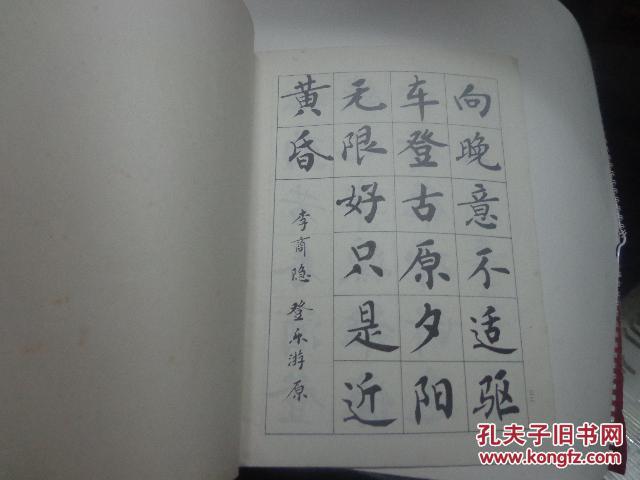 向晚意不适驱
车登古原夕阳
无限好只是近
黄昏
李商隐 登乐游原
孔夫子旧书网
www.kongfz.com